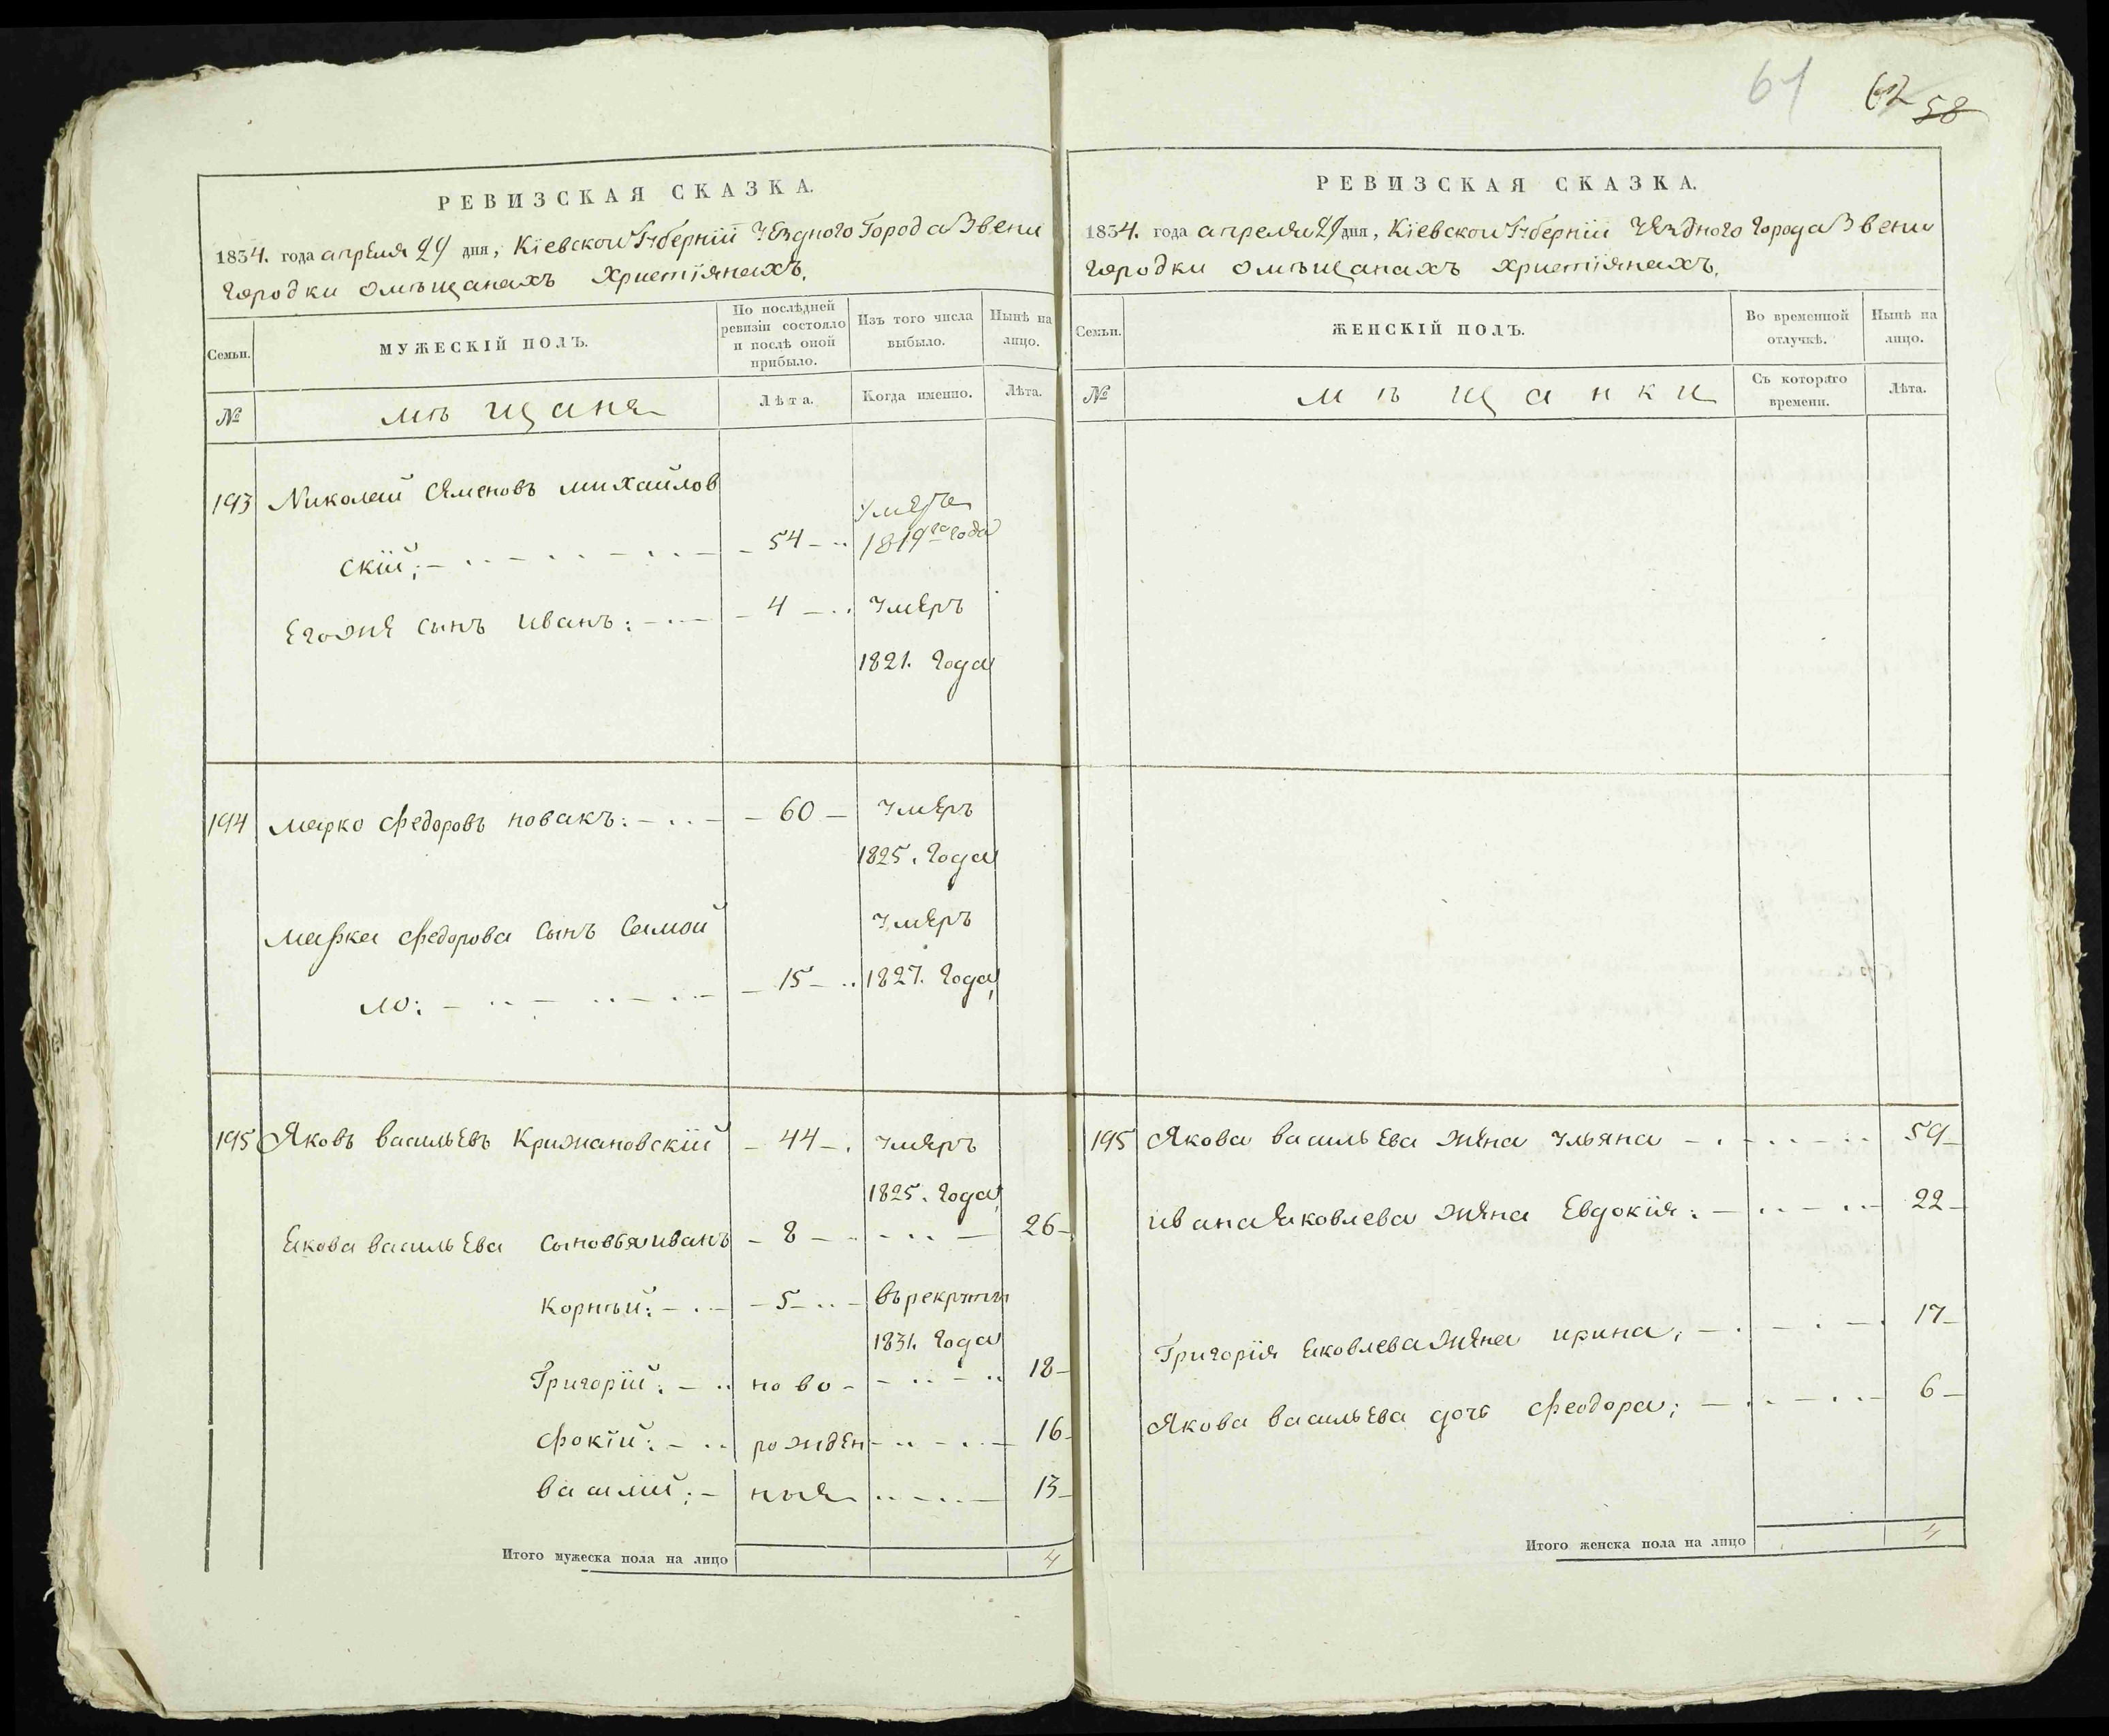 61 62 58
РЕВИЗСКАЯ СКАЗКА.
1834. года апреля 29 дня, Кіевской Губерніи Уезднаго Города Звени
городки о мѣщанахъ христіянахъ.
Семьи. МУЖЕСКІЙ ПОЛЪ. По послѣдней ревизіи состояло и послѣ оной прибыло. Изъ того числа выбыло. Нынѣ на лицо.
№ мѣщане Лѣта. Когда именно. Лѣта.
193 Николай Семеновъ михайлов
умре
скій; 54 1819го года
Егоже сынъ иванъ: 4 умеръ
1821. года
194 марко Федоровъ новакъ: 60 умеръ
1825. года
марка Федорова сынъ Самой умеръ
ло: 15 1827. года
195 Яковъ васильевъ Крижановскій 44 умеръ
1825. года
Якова васильева сыновья иванъ 8 26
Корнѣй: 5 въ рекруты
1831. года
Григорій: ново 18
Фокій: рожден 16
василій; ные 13
Итого мужеска пола на лицо 4
РЕВИЗСКАЯ СКАЗКА.
1834. года апреля 29 дня, Кіевской Губерніи Уезднаго города Звени
городки о мѣщанахъ христіянахъ.
Семьи. ЖЕНСКІЙ ПОЛЪ. Во временной отлучкѣ. Нынѣ на лицо.
№ мѣщанки Съ котораго времени. Лѣта.
195 Якова васильева жена ульяна 59
ивана Яковлева жена Евдокія: 22
Григорія Яковлева жена ирина; 17
Якова васильева дочь Феодора; 6
Итого женска пола на лицо 4